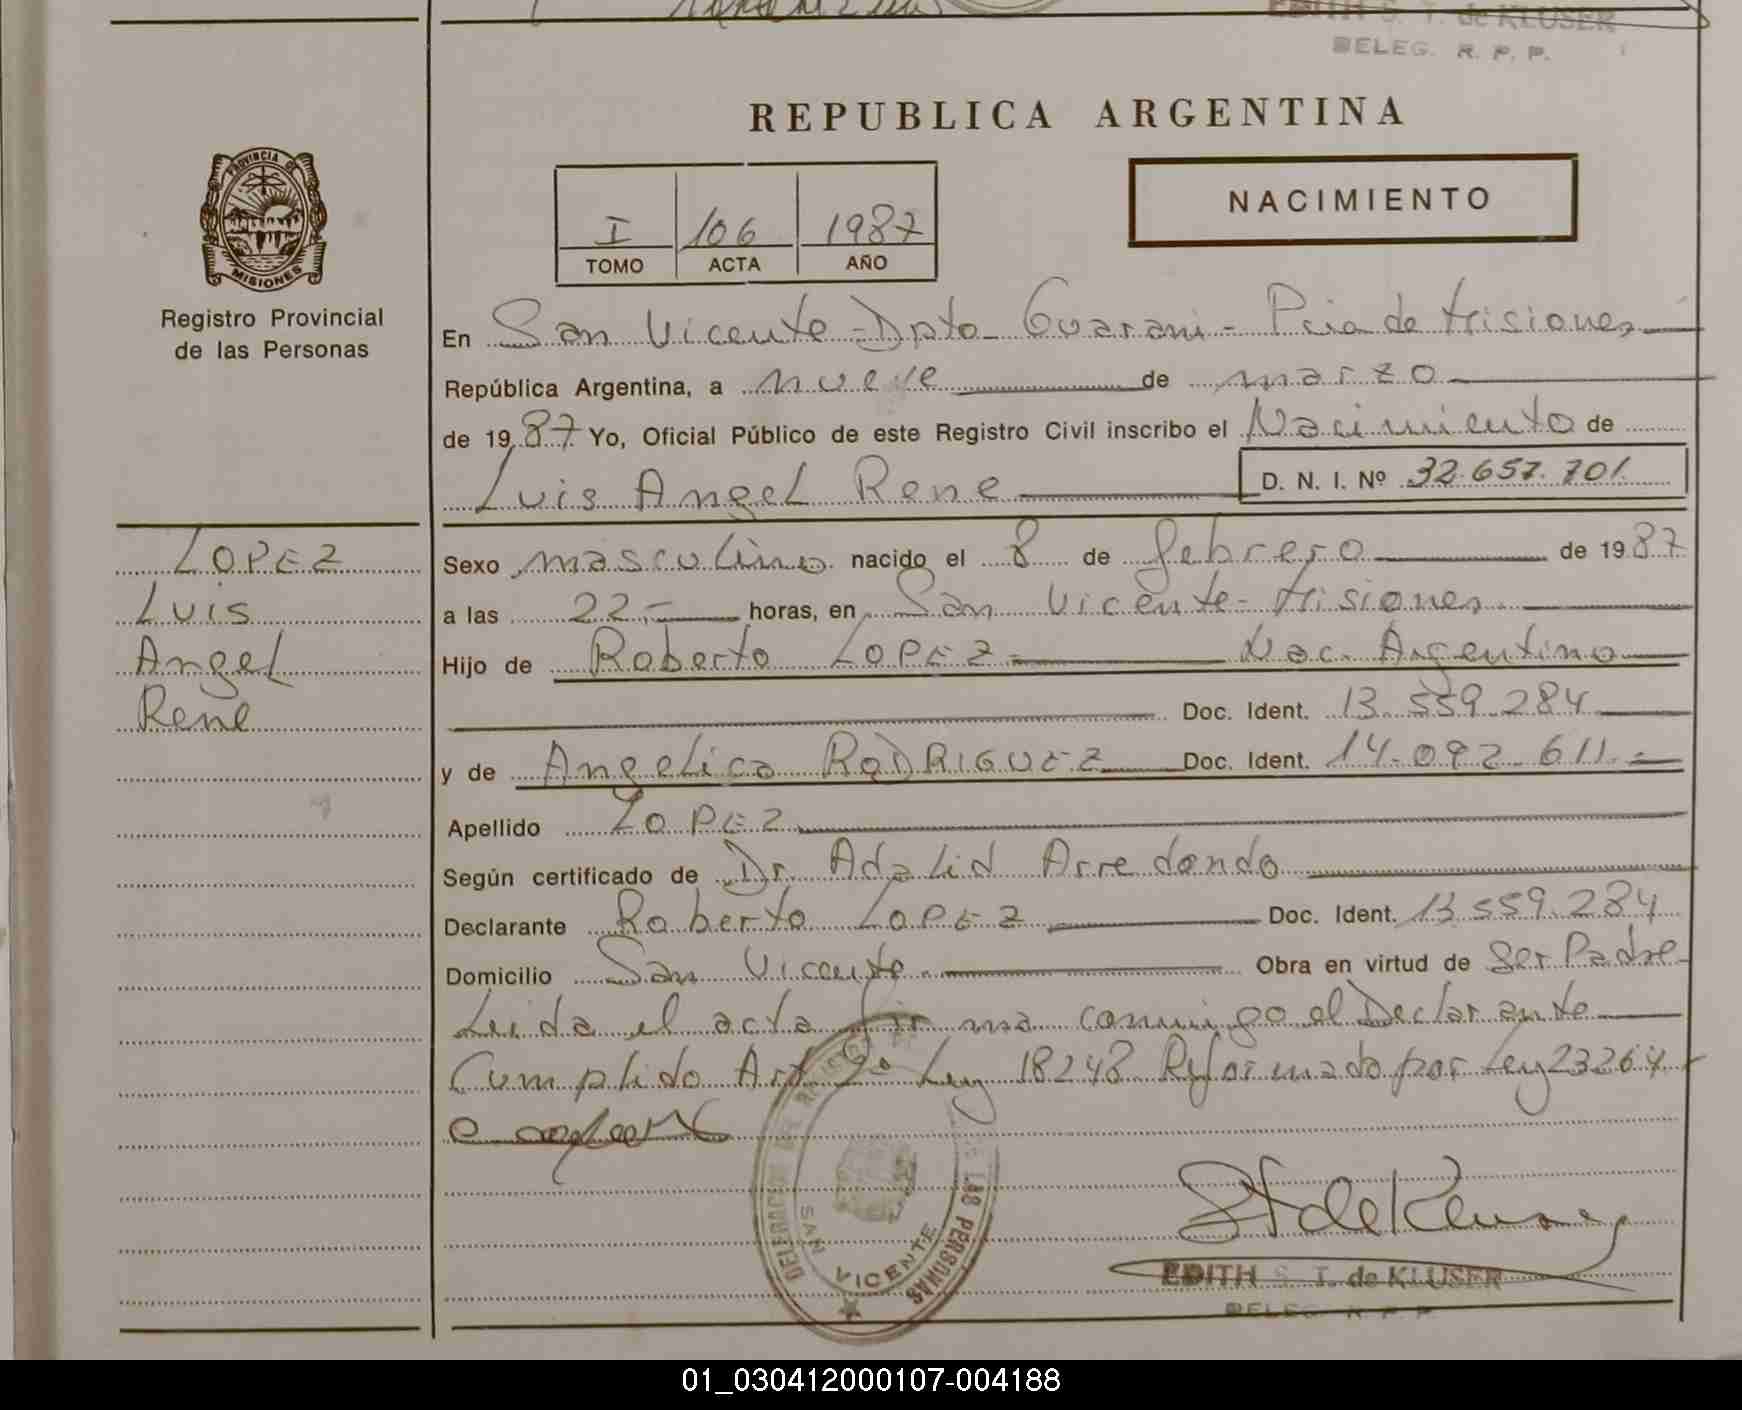 EDITH S. T. de KLUSER
DELEG. R. P. P.
REPUBLICA ARGENTINA
PROVINCIA DE
MISIONES
Registro Provincial
de las Personas
I 106 1987
TOMO ACTA AÑO
NACIMIENTO
En San Vicente - Dpto Guarani - Pcia de Misiones
República Argentina, a nueve de marzo
de 1987 Yo, Oficial Público de este Registro Civil inscribo el Nacimiento de
Luis Angel Rene D. N. I. Nº 32.657.701
LOPEZ
Luis
Angel
Rene
Sexo masculino nacido el 8 de febrero de 1987
a las 22.- horas, en San Vicente - Misiones
Hijo de Roberto LOPEZ Nac. Argentino
Doc. Ident. 13.559.284
y de Angelica RODRIGUEZ Doc. Ident. 14.092.611.=
Apellido LOPEZ
Según certificado de Dr. Adalid Arredondo
Declarante Roberto LOPEZ Doc. Ident. 13.559.284
Domicilio San Vicente Obra en virtud de Ser Padre
Leida el acta firma conmigo el Declarante
Cumplido Art 2º Ley 18248 Reformado por Ley 23264
DELEGACION DE REGISTRO LAS PERSONAS
SAN VICENTE
EDITH S. T. de KLUSER
DELEG. R. P. P.
01_030412000107-004188